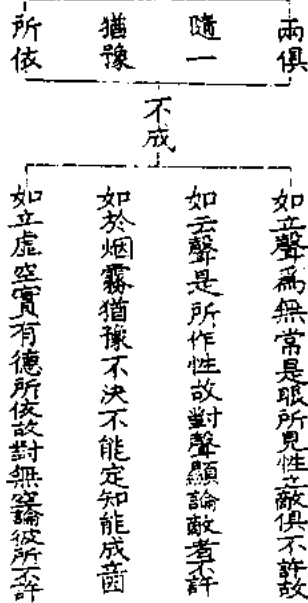 兩俱
隨一
猶豫
所依
不成
如立聲爲無常是眼所見性立敵俱不許故
如云聲是所作性故對聲顯論敵者不許
如於烟霧猶豫不決不能定知能成
如立虛空實有德所依故對無空論彼所不許